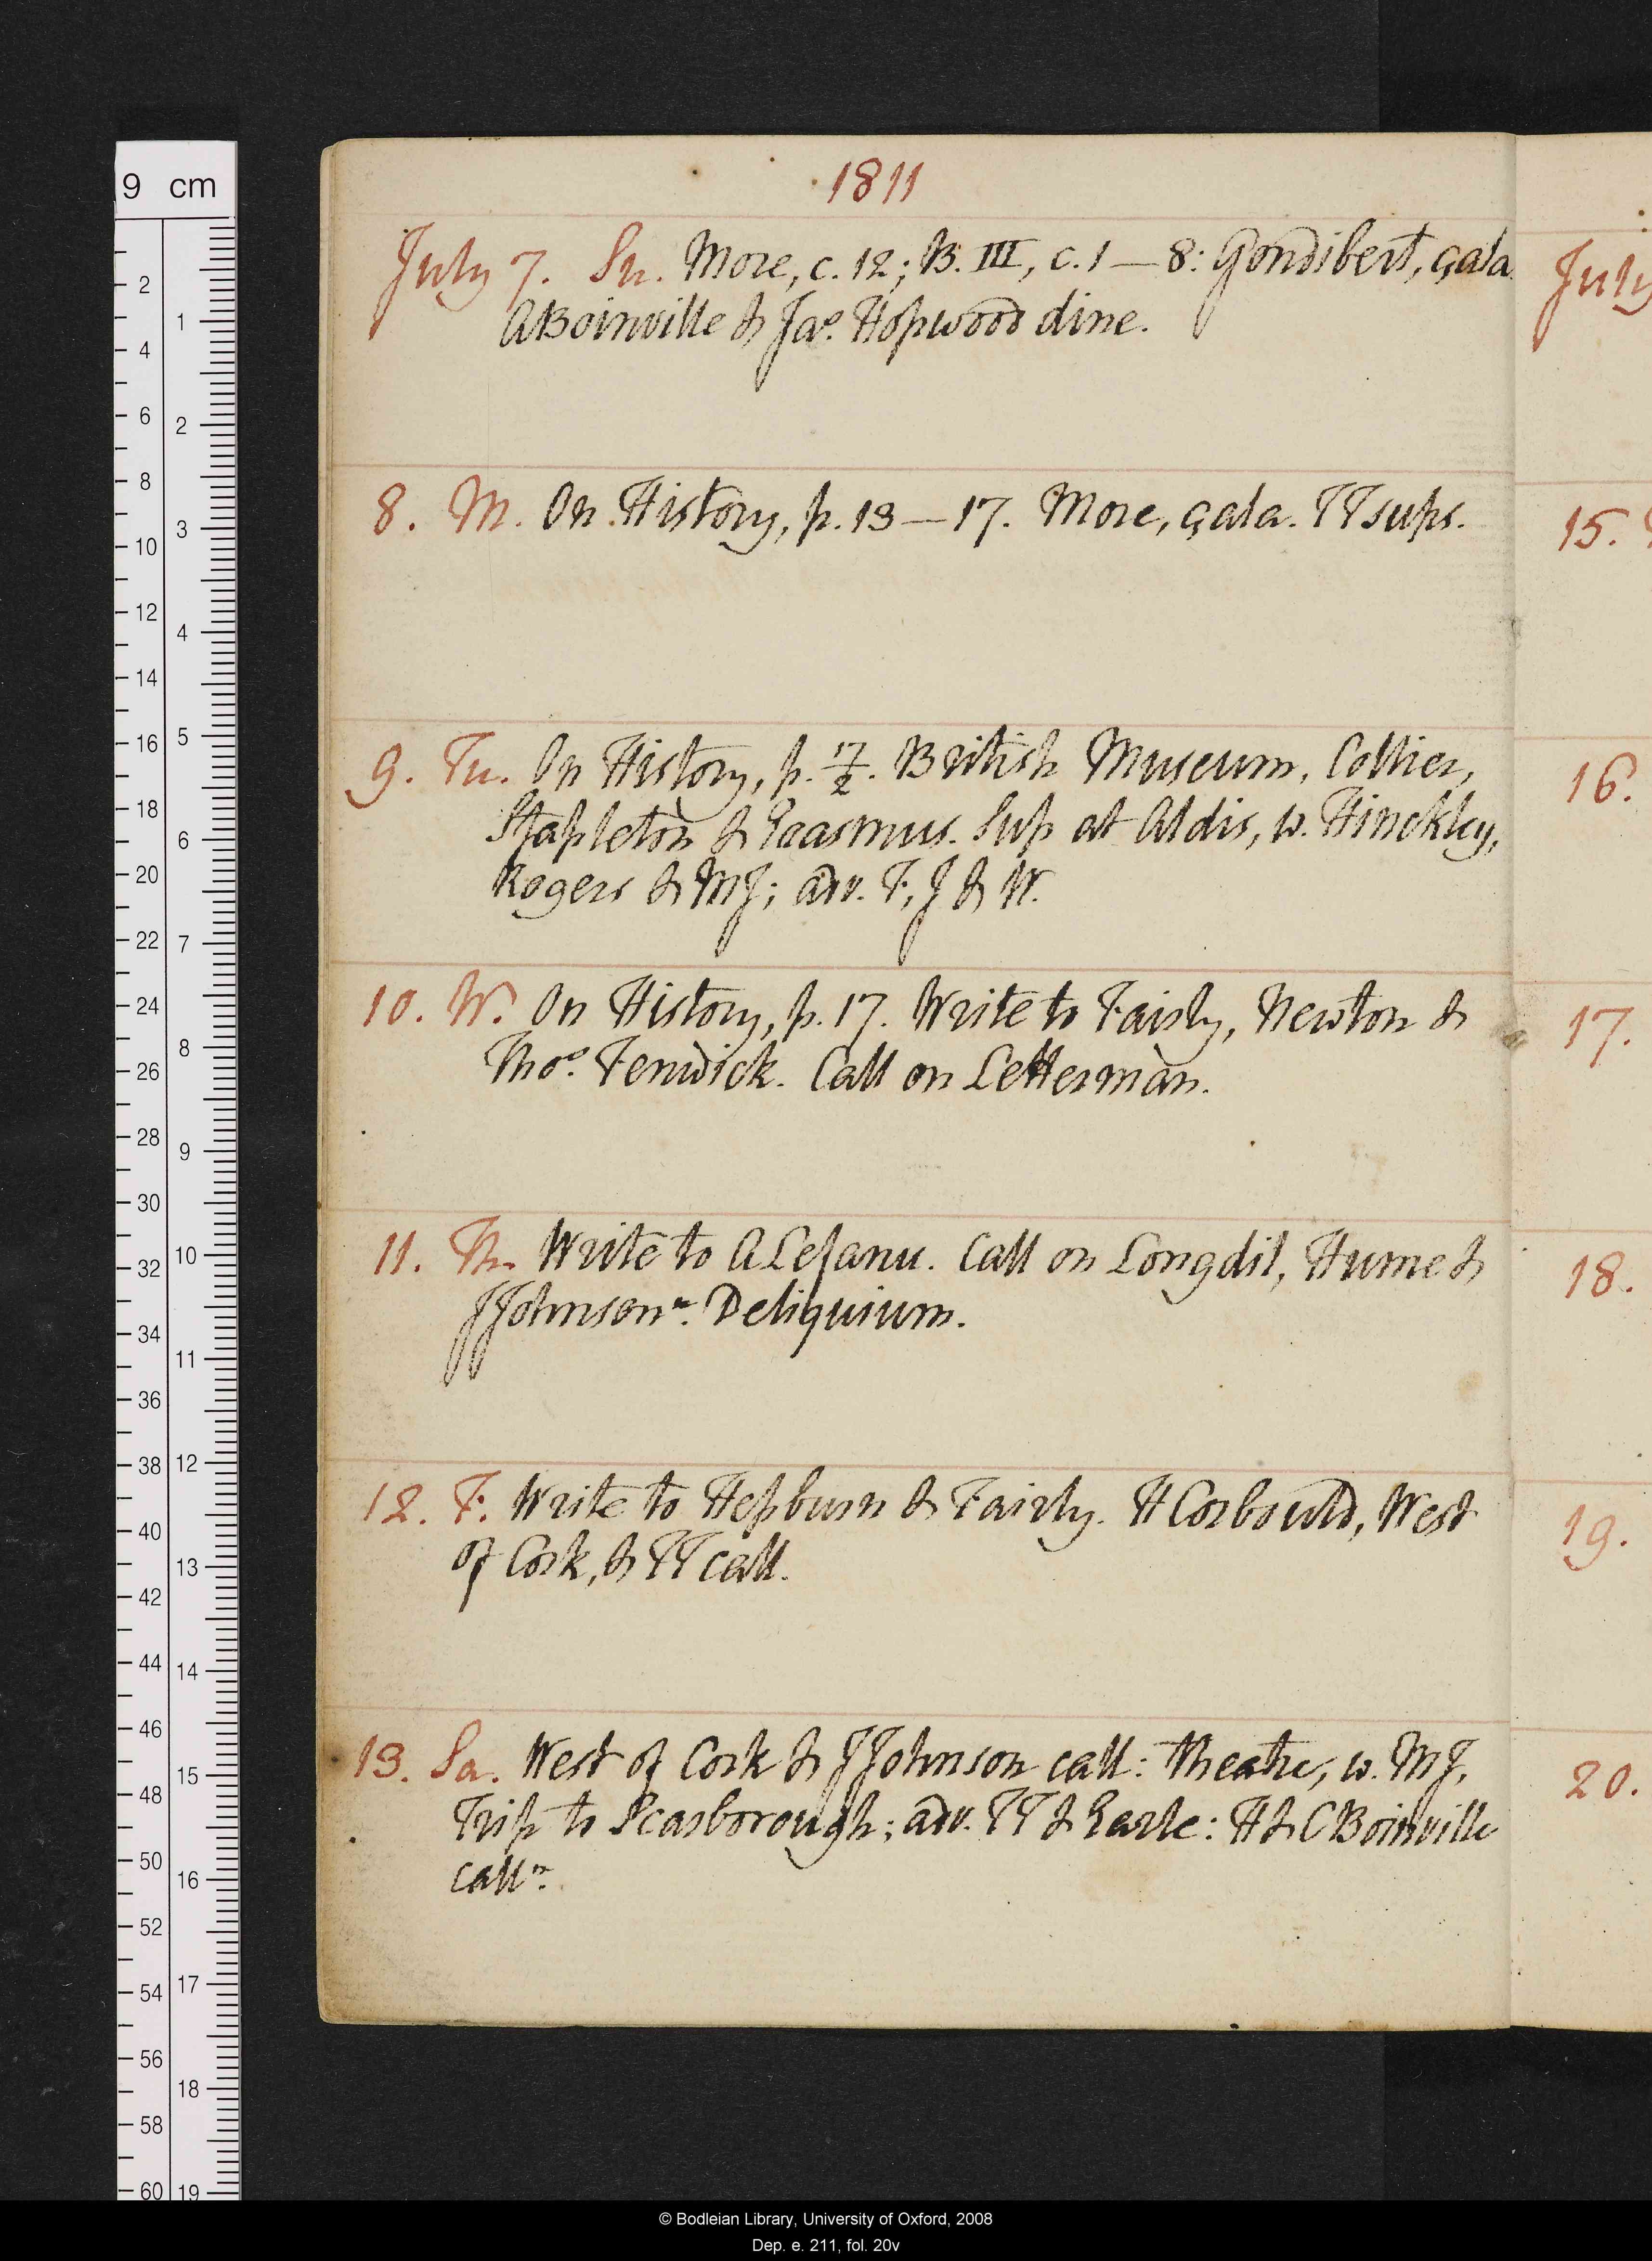 1811
July 7. Su. More, c. 12; B. III, c. 1—8: Gondibert, çala.
ABoinville & Jas. Hopwood dine.
8. M. On History, p. 13—17. More, çala. TT sups.
9. Tu. On History, p. 17/2. British Museum, Collier,
Stapleton & Erasmus. Sup at Aldis, w. Hinckley,
Rogers & MJ; adv. F, J & W.
10. W. On History, p. 17. Write to Fairly, Newton &
Thos. Fenwick. Call on Letterman.
11. Th. Write to A Lefanu. Call on Longdil, Hume &
JJohnson n. Deliquium.
12. F. Write to Hepburn & Fairly. H Corbould, West
of Cork, & TT call.
13. Sa. West of Cork & JJohnson call: theatre, w. MJ,
Trip to Scarborough; adv. TT & Earle: H & C Boinville
call n.
July
15.
16.
17.
18.
19.
20.
9 cm
2 4 6 8 10 12 14 16 18 20 22 24 26 28 30 32 34 36 38 40 42 44 46 48 50 52 54 56 58 60
1 2 3 4 5 6 7 8 9 10 11 12 13 14 15 16 17 18 19
© Bodleian Library, University of Oxford, 2008
Dep. e. 211, fol. 20v